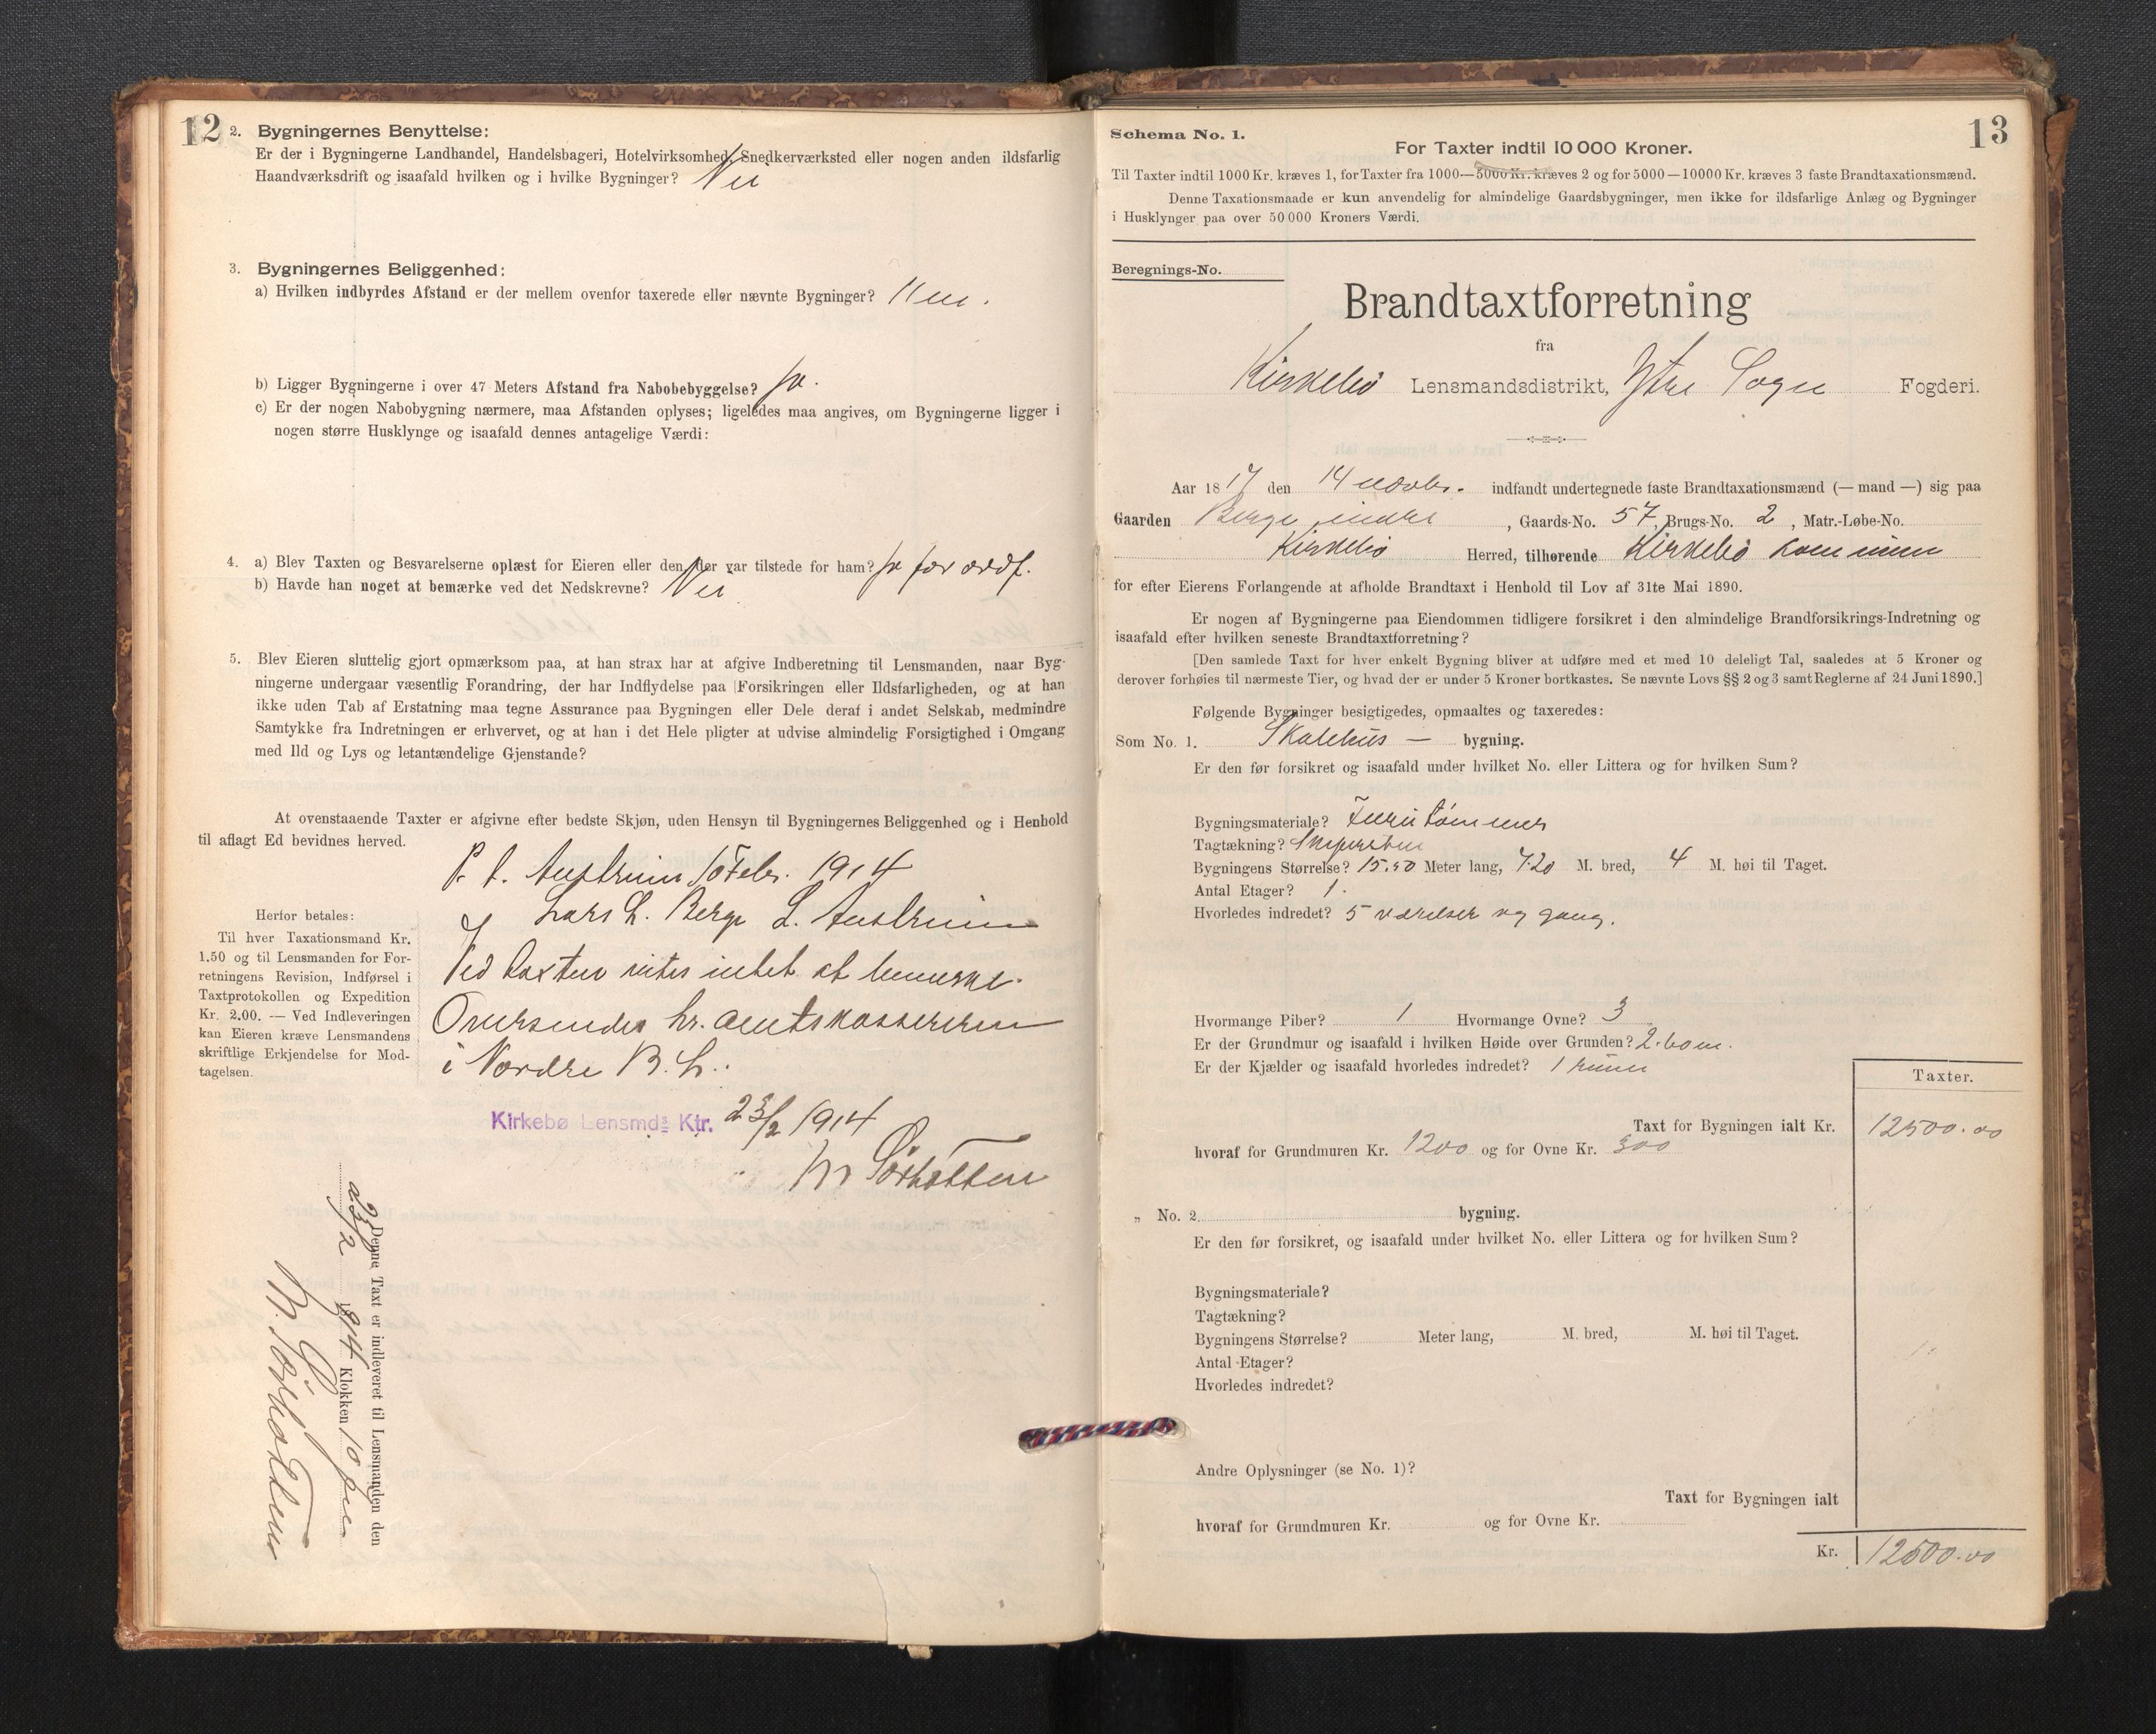 12
2. Bygningernes Benyttelse:
Er der i Bygningerne Landhandel, Handelsbageri, Hotelvirksomhed, Snedkerværksted eller nogen anden ildsfarlig
Haandværksdrift og isaafald hvilken og i hvilke Bygninger? Nei
3. Bygningernes Beliggenhed:
a) Hvilken indbyrdes Afstand er der mellem ovenfor taxerede eller nævnte Bygninger?
b) Ligger Bygningerne i over 47 Meters Afstand fra Nabobebyggelse? Ja.
c) Er der nogen Nabobygning nærmere, maa Afstanden oplyses; ligeledes maa angives, om Bygningerne ligger i
nogen større Husklynge og isaafald dennes antagelige Værdi:
4. a) Blev Taxten og Besvarelserne oplæst for Eieren eller den der var tilstede for ham? Ja for ordf.
b) Havde han noget at bemærke ved det Nedskrevne? Nei
5. Blev Eieren sluttelig gjort opmærksom paa, at han strax har at afgive Indberetning til Lensmanden, naar Byg-
ningerne undergaar væsentlig Forandring, der har Indflydelse paa Forsikringen eller Ildsfarligheden, og at han
ikke uden Tab af Erstatning maa tegne Assurance paa Bygningen eller Dele deraf i andet Selskab, medmindre
Samtykke fra Indretningen er erhvervet, og at han i det Hele pligter at udvise almindelig Forsigtighed i Omgang
med Ild og Lys og letantændelige Gjenstande?
At ovenstaaende Taxter er afgivne efter bedste Skjøn, uden Hensyn til Bygningernes Beliggenhed og i Henhold
til aflagt Ed bevidnes herved.
P. t. Austreim 10 Febr. 1914
Lars L. Berge L. Austreim
Ved taxten vites intet at bemerke.
Oversendes hr. amtskassereren
i Nordre B. h.
Kirkebø Lensmds Ktr. 23/2 1914
M Sörbotten
Herfor betales:
Til hver Taxationsmand Kr.
1.50 og til Lensmanden for For-
retningens Revision, Indførsel i
Taxtprotokollen og Expedition
Kr. 2.00. — Ved Indleveringen
kan Eieren kræve Lensmandens
skriftlige Erkjendelse for Mod-
tagelsen.
Denne Taxt er indleveret til Lensmanden den
23/2 1914 Klokken 10 fm
M. Sörbotten
13
Schema No. 1.
For Taxter indtil 10 000 Kroner.
Til Taxter indtil 1000 Kr. kræves 1, for Taxter fra 1000—5000 Kr. kræves 2 og for 5000—10000 Kr. kræves 3 faste Brandtaxationsmænd.
Denne Taxationsmaade er kun anvendelig for almindelige Gaardsbygninger, men ikke for ildsfarlige Anlæg og Bygninger
i Husklynger paa over 50 000 Kroners Værdi.
Beregnings-No.
Brandtaxtforretning
fra
Kirkebö Lensmandsdistrikt, Ytre Sogn Fogderi.
Aar 18 17 den 14 novbr. indfandt undertegnede faste Brandtaxationsmænd (— mand —) sig paa
Gaarden Berge indre, Gaards-No. 57, Brugs-No. 2, Matr.-Løbe-No.
Kirkebö Herred, tilhørende Kirkebö kommune
for efter Eierens Forlangende at afholde Brandtaxt i Henhold til Lov af 31te Mai 1890.
Er nogen af Bygningerne paa Eiendommen tidligere forsikret i den almindelige Brandforsikrings-Indretning og
isaafald efter hvilken seneste Brandtaxtforretning?
[Den samlede Taxt for hver enkelt Bygning bliver at udføre med et med 10 deleligt Tal, saaledes at 5 Kroner og
derover forhøies til nærmeste Tier, og hvad der er under 5 Kroner bortkastes. Se nævnte Lovs §§ 2 og 3 samt Reglerne af 24 Juni 1890.]
Følgende Bygninger besigtigedes, opmaaltes og taxeredes:
Som No. 1. Skolehus — bygning.
Er den før forsikret og isaafald under hvilket No. eller Littera og for hvilken Sum?
Bygningsmateriale? Furu tömmer
Tagtækning?
Bygningens Størrelse? 15.50 Meter lang, 7.20 M. bred, 4 M. høi til Taget.
Antal Etager? 1.
Hvorledes indredet? 5 værelser og gang.
Hvormange Piber? 1 Hvormange Ovne? 3
Er der Grundmur og isaafald i hvilken Høide over Grunden? 2.60 m.
Er der Kjælder og isaafald hvorledes indredet? 1 rum
Taxter.
Taxt for Bygningen ialt Kr. 12500.00
hvoraf for Grundmuren Kr. 1200 og for Ovne Kr. 300
„ No. 2. bygning.
Er den før forsikret, og isaafald under hvilket No. eller Littera og for hvilken Sum?
Bygningsmateriale?
Tagtækning?
Bygningens Størrelse? Meter lang, M. bred, M. høi til Taget.
Antal Etager?
Hvorledes indredet?
Andre Oplysninger (se No. 1)?
Taxt for Bygningen ialt
hvoraf for Grundmuren Kr. og for Ovne Kr.
Kr. 12500.00